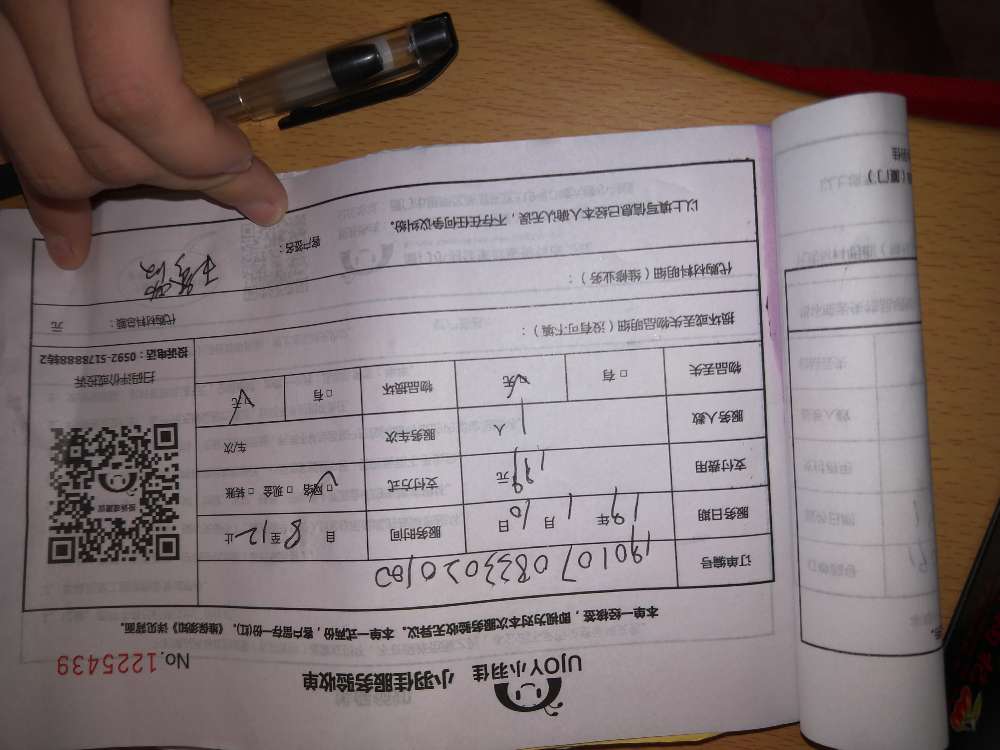 UJOY小羽佳 小羽佳服务验收单
No.1225439
本单一经核签，即视为对本次服务验收无异议。本单一式两份，客户留存一份(红)。《维保须知》详见背面。
订单编号 190107083302010
服务日期 19年 1月 10日 服务时间 自 8 至 12 止
支付费用 199元 支付方式 □网络 □现金 □转账
服务人数 1人 服务车次 车/次
物品丢失 □有 □无 物品损坏 □有 □无
投诉或建议
扫码评价或投诉
投诉电话：0592-5178888转2
损坏或丢失物品明细（没有可不填）：
代购材料明细（维修业务）：
代购材料总额： 元
以上填写信息已经本人确认无误，不存在任何争议纠纷。
客户签名：